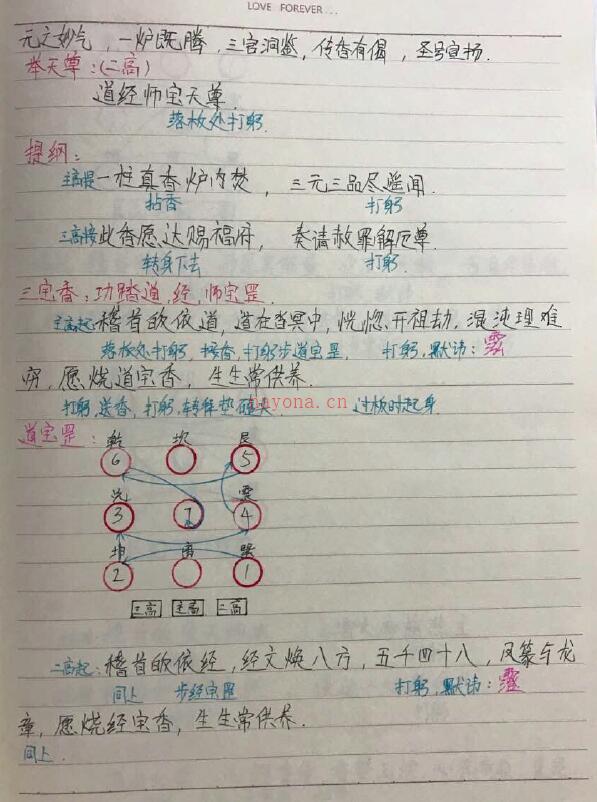 LOVE FOREVER...
元之妙气，一炉既腾，三官洞鉴，传香有偈，圣号宣扬．
举天尊：(二高)
道经师宝天尊．
落板处打躬．
提纲：
主高提一柱真香炉内焚，三元三品尽遥闻．
拈香 打躬．
三高接此香愿达赐福府，奏请赦罪解厄尊．
转身下去 打躬．
三宝香：功踏道，经，师宝罡．
主高起：稽首皈依道，道在杳冥中，恍惚开祖劫，混沌理难
落板处打躬，接香，打躬步道宝罡， 打躬，默讳：
穷，愿烧道宝香，生生常供养．
打躬，送香，打躬，转拜垫磕头． 过板时起身
nayona.cn
道宝罡：
乾 坎 艮
6 5
兑 震
3 7 4
坤 离 巽
2 1
三高 主高 二高
二高起：稽首皈依经，经文焕八方，五千四十八，凤篆与龙
同上 步经宝罡 打躬，默讳：
章，愿烧经宝香，生生常供养．
同上．